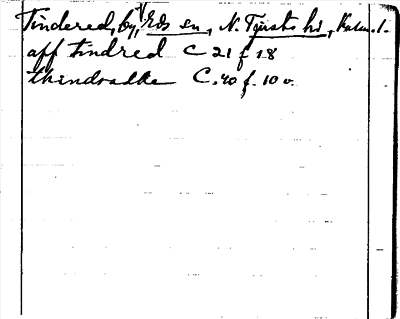 Tindered, by, Eds sn, N. Tjusts hd, Kalm. l.
aff tindred C 21 f 18
thindradhe C. 40 f. 10 v.